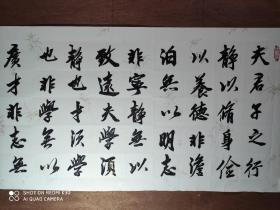 夫君子之行
静以脩身儉
以養德非澹
泊無以明志
非寧静無以
致遠夫學須
静也才須學
也非學無以
廣才非志無
REDMI NOTE 8
AI QUAD CAMERA